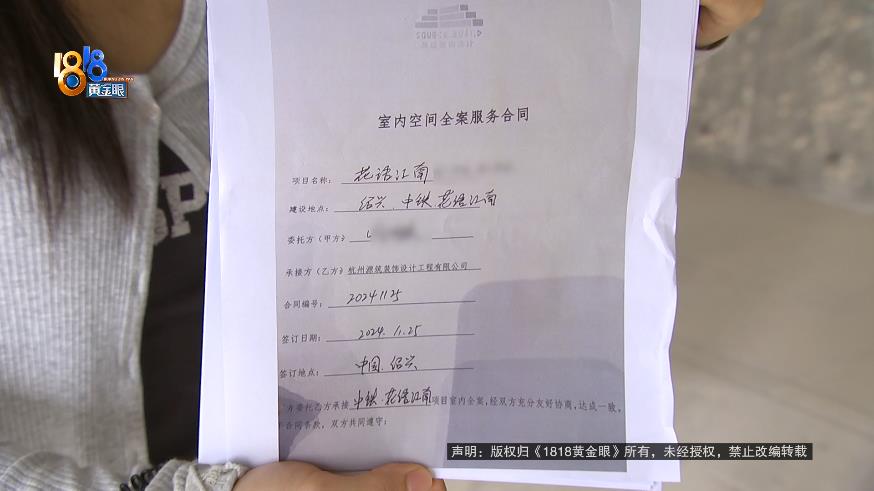 1818
黄金眼
室内空间全案服务合同
项目名称：花语江南
建设地点：绍兴.中铁.花语江南
委托方（甲方）
承接方（乙方）杭州源筑装饰设计工程有限公司
合同编号：20241125
签订日期：2024.11.25
签订地点：中国.绍兴
方委托乙方承接中铁.花语江南项目室内全案，经双方充分友好协商，达成一致，
合同条款，双方共同遵守：
声明：版权归《1818黄金眼》所有，未经授权，禁止改编转载